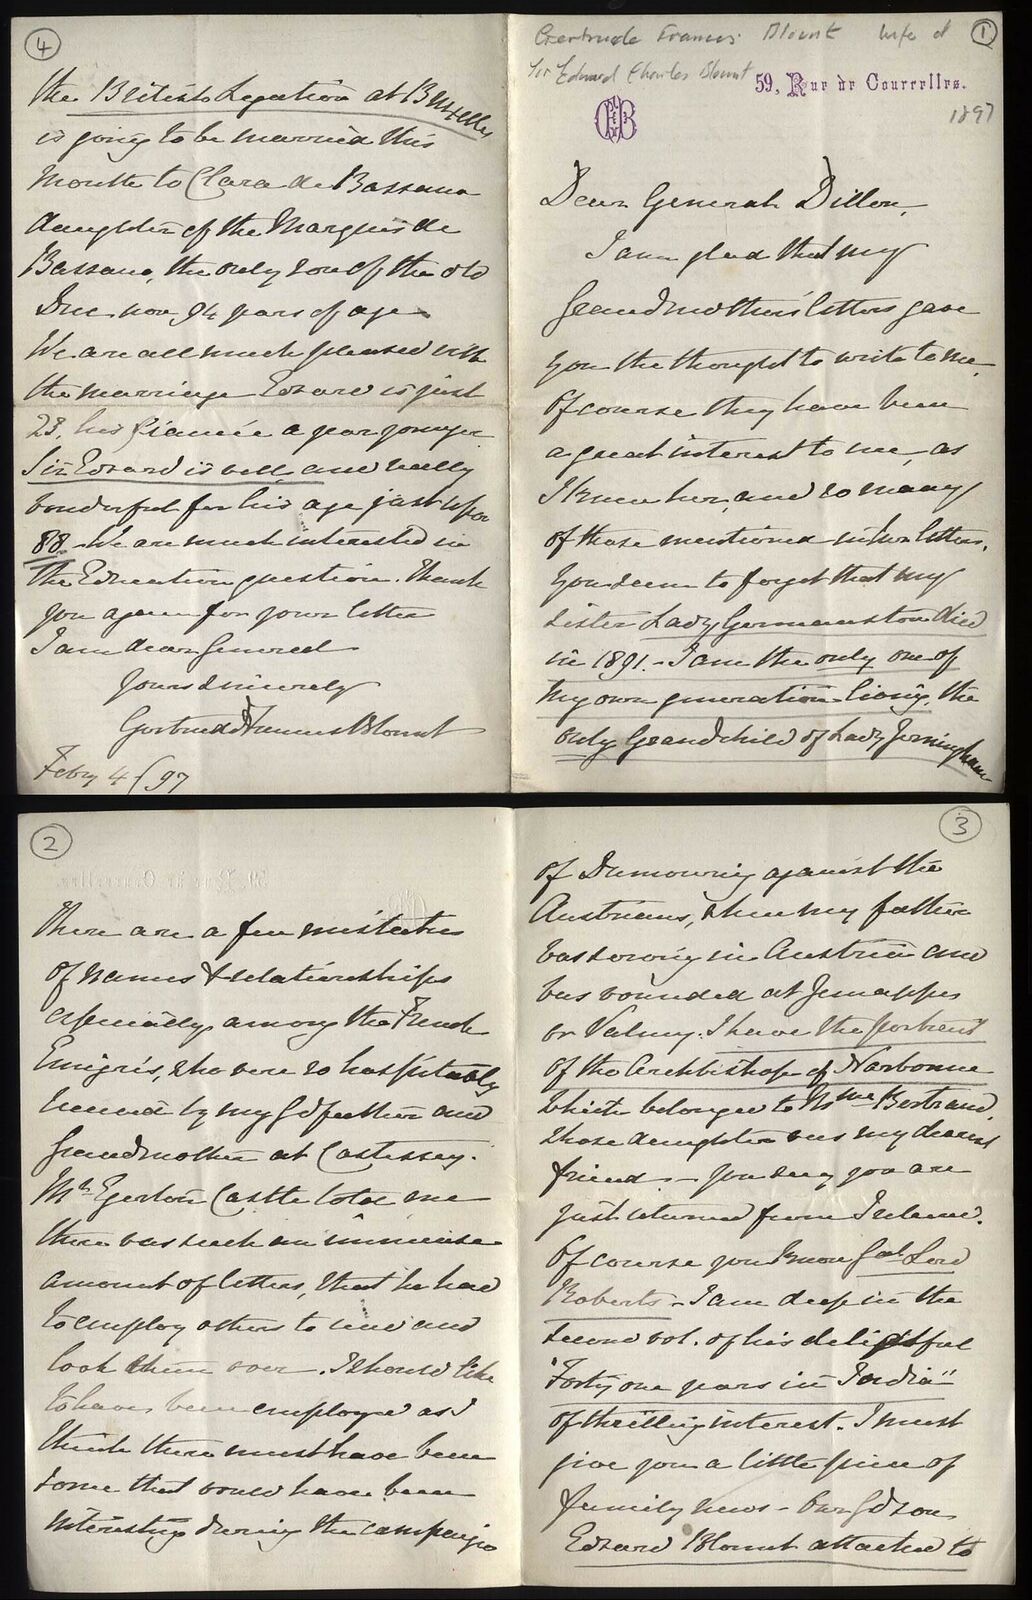 1
Gertrude Francis Blount wife of
Sir Edward Charles Blount
59, Rue de Courcelles.
1897
Dear General Dillon,
I am glad that my
Grandmother's letters gave
you the thought to write to me,
Of course they have been
a great interest to me, as
I knew her, and so many
of those mentioned in her letters.
You seem to forget that my
sister Lady Gormanston died
in 1891. - I am the only one of
my own generation living, the
only Grandchild of Lady Jerningham
2
There are a few mistakes
of names & relationships
especially among the French
Emigrés, who were so hospitably
received by my Gdfather and
Grandmother at Costessey.
Mr. Egerton Castle told me
there was such an immense
amount of letters, that he had
to employ others to read and
look them over. I should like
to have been employed as I
think there must have been
some that would have been
interesting during the campaign
3
of Dumouriez against the
Austrians, when my father
was serving in Austria and
was wounded at Jemappes
or Valmy. I have the portrait
of the Archbishop of Narbonne
which belonged to Mme Bertrand,
whose daughter was my dearest
friend - You say you are
just returned from Ireland.
Of course you know Gal Lord
Roberts - I am deep in the
second vol. of his delightful
"Forty one years in India"
of thrilling interest. I must
give you a little piece of
family news - Our Gdson
Edward Blount attached to
4
the British Legation at Bruxelles
is going to be married this
month to Clara de Bassano
daughter of the Marquis de
Bassano, the only son of the old
Duc, now 94 years of age
We are all much pleased with
the marriage Edward is just
23, his fiancée a year younger
Sir Edward is well and really
wonderful for his age just upon
88. We are much interested in
the Education question. Thank
you again for your letter
I am dear General
Yours sincerely
Gertrude Frances Blount
Febry 4 /97